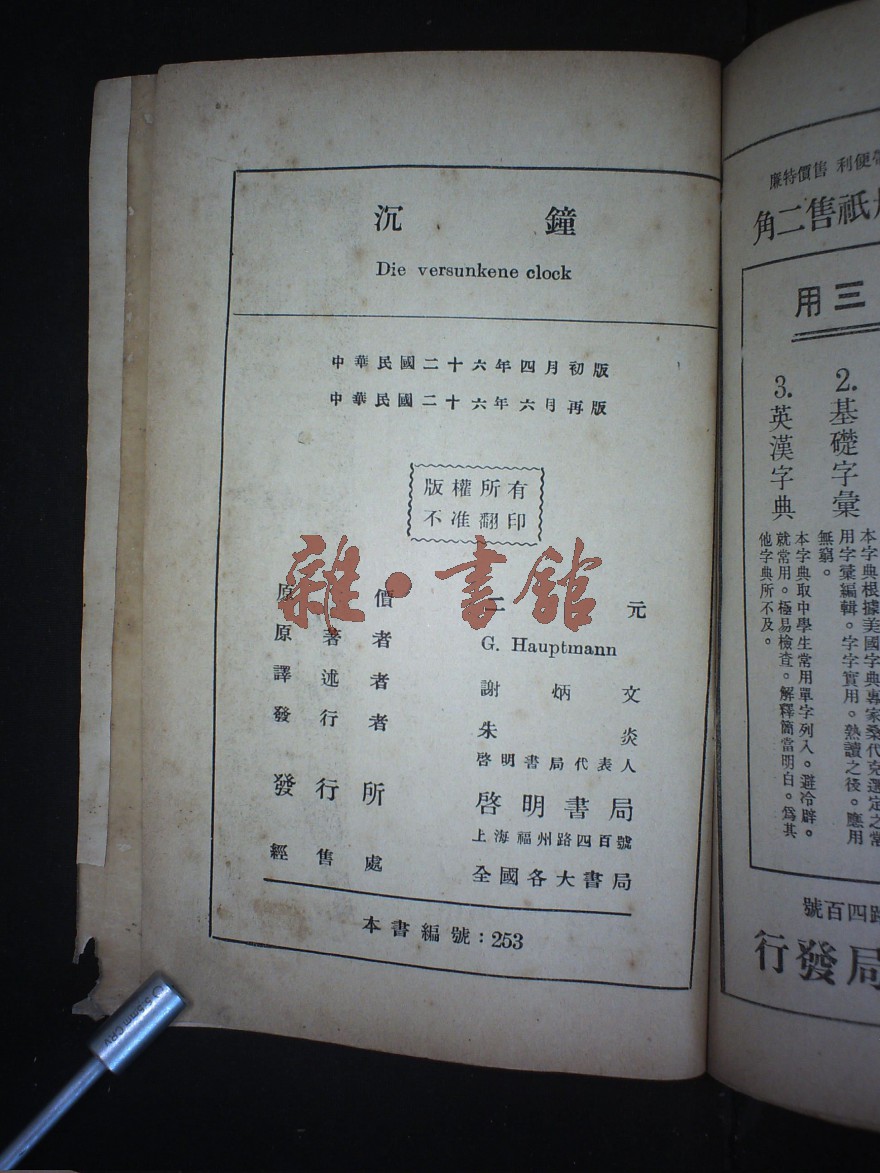 沉鐘
Die versunkene clock
中華民國二十六年四月初版
中華民國二十六年六月再版
版權所有
不准翻印
雜·書館
原價 二元
原著者 G. Hauptmann
譯述者 謝炳文
發行者 朱炎
啓明書局代表人
發行所 啓明書局
上海福州路四百號
經售處 全國各大書局
本書編號：253
廉特價售 利便
角二售祇
用三
2.基礎字彙
本字典根據美國字典專家桑代克選定之常
用字彙編輯。字字實用。熟讀之後。應用
無窮。
3.英漢字典
本字典取中學生常用單字列入。避冷辟。
就常用。極易檢查。解釋簡當明白。爲其
他字典所不及。
號百四路
行發局
5.5mm CRV